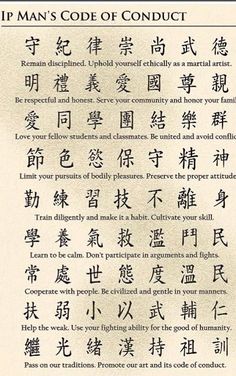 IP MAN'S CODE OF CONDUCT
守紀律崇尚武德
Remain disciplined. Uphold yourself ethically as a martial artist.
明禮義愛國尊親
Be respectful and honest. Serve your community and honor your family
愛同學團結樂群
Love your fellow students and classmates. Be united and avoid conflict
節色慾保守精神
Limit your pursuits of bodily pleasures. Preserve the proper attitude
勤練習技不離身
Train diligently and make it a habit. Cultivate your skill.
學養氣救濫鬥民
Learn to be calm. Don't participate in arguments and fights.
常處世態度溫民
Cooperate with people. Be civilized and gentle in your manners.
扶弱小以武輔仁
Help the weak. Use your fighting ability for the good of humanity.
繼光緒漢持祖訓
Pass on our traditions. Promote our art and its code of conduct.